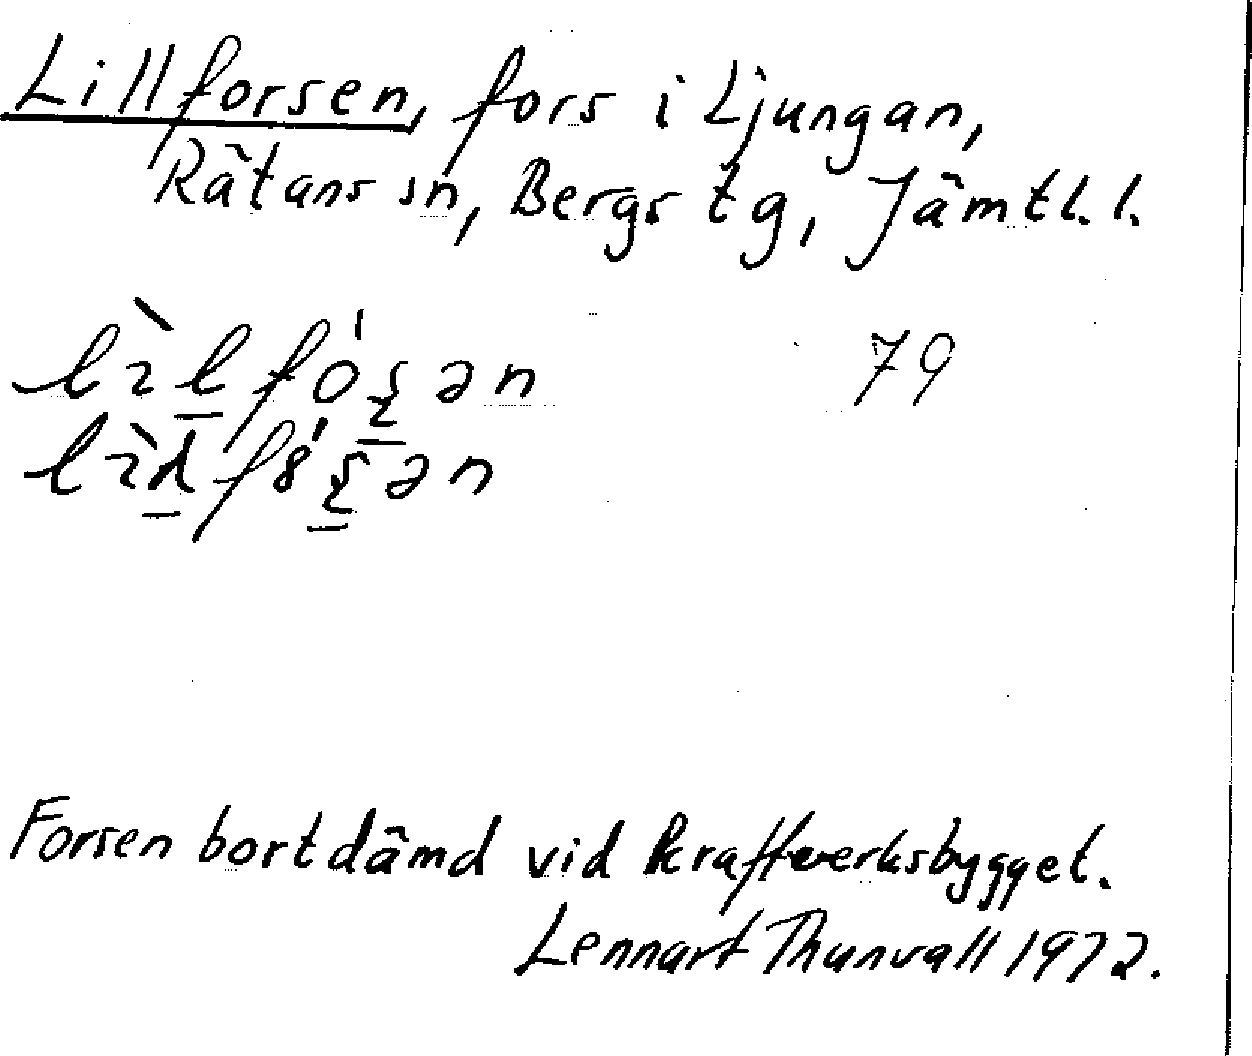 Lillforsen, fors i Ljungan,
Rätans sn, Bergs tg, Jämtl. l.
79
Forsen bortdämd vid kraftverksbygget.
Lennart Thunvall 1972.